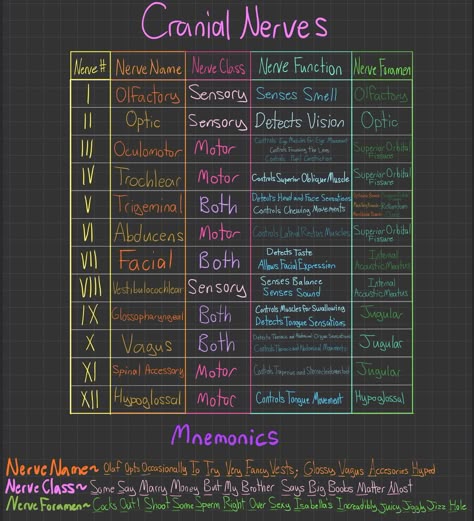 Cranial Nerves
Nerve # Nerve Name Nerve Class Nerve Function Nerve Foramen
I Olfactory Sensory Senses Smell Olfactory
II Optic Sensory Detects Vision Optic
III Oculomotor Motor Controls Eye Muscles for Eye Movement Superior Orbital
Controls Focusing The Lens Fissure
Controls Pupil Constriction
IV Trochlear Motor Controls Superior Oblique Muscle Superior Orbital
Fissure
V Trigeminal Both Detects Head and Face Sensations
Controls Chewing Movements
VI Abducens Motor Controls Lateral Rectus Muscles Superior Orbital
Fissure
VII Facial Both Detects Taste Internal
Allows Facial Expression Acoustic
VIII Vestibulocochlear Sensory Senses Balance Internal
Senses Sound Acoustic
IX Glossopharyngeal Both Controls Muscles for Swallowing Jugular
Detects Tongue Sensations
X Vagus Both Detects Thoracic and Abdominal Organ Sensations Jugular
Controls Thoracic and Abdominal Movements
XI Spinal Accessory Motor Controls Trapezius and Sternocleidomastoid Jugular
XII Hypoglossal Motor Controls Tongue Movement Hypoglossal
Mnemonics
Nerve Name~ Olaf Opts Occasionally To Try Very Fancy Vests; Glossy Vagus Accesories Hyped
Nerve Class~ Some Say Marry Money But My Brother Says Big Boobs Matter Most
Nerve Foramen~ Cocks Out! Shoot Some Sperm Right Over Sexy Isabella's Increadibly Juicy Jiggly Jizz Hole